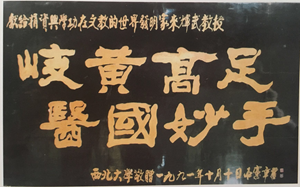 獻給捐資興學功在文教的世界發明家來輝武教授
岐黃高足
醫國妙手
西北大学敬贈一九九一年十月十日